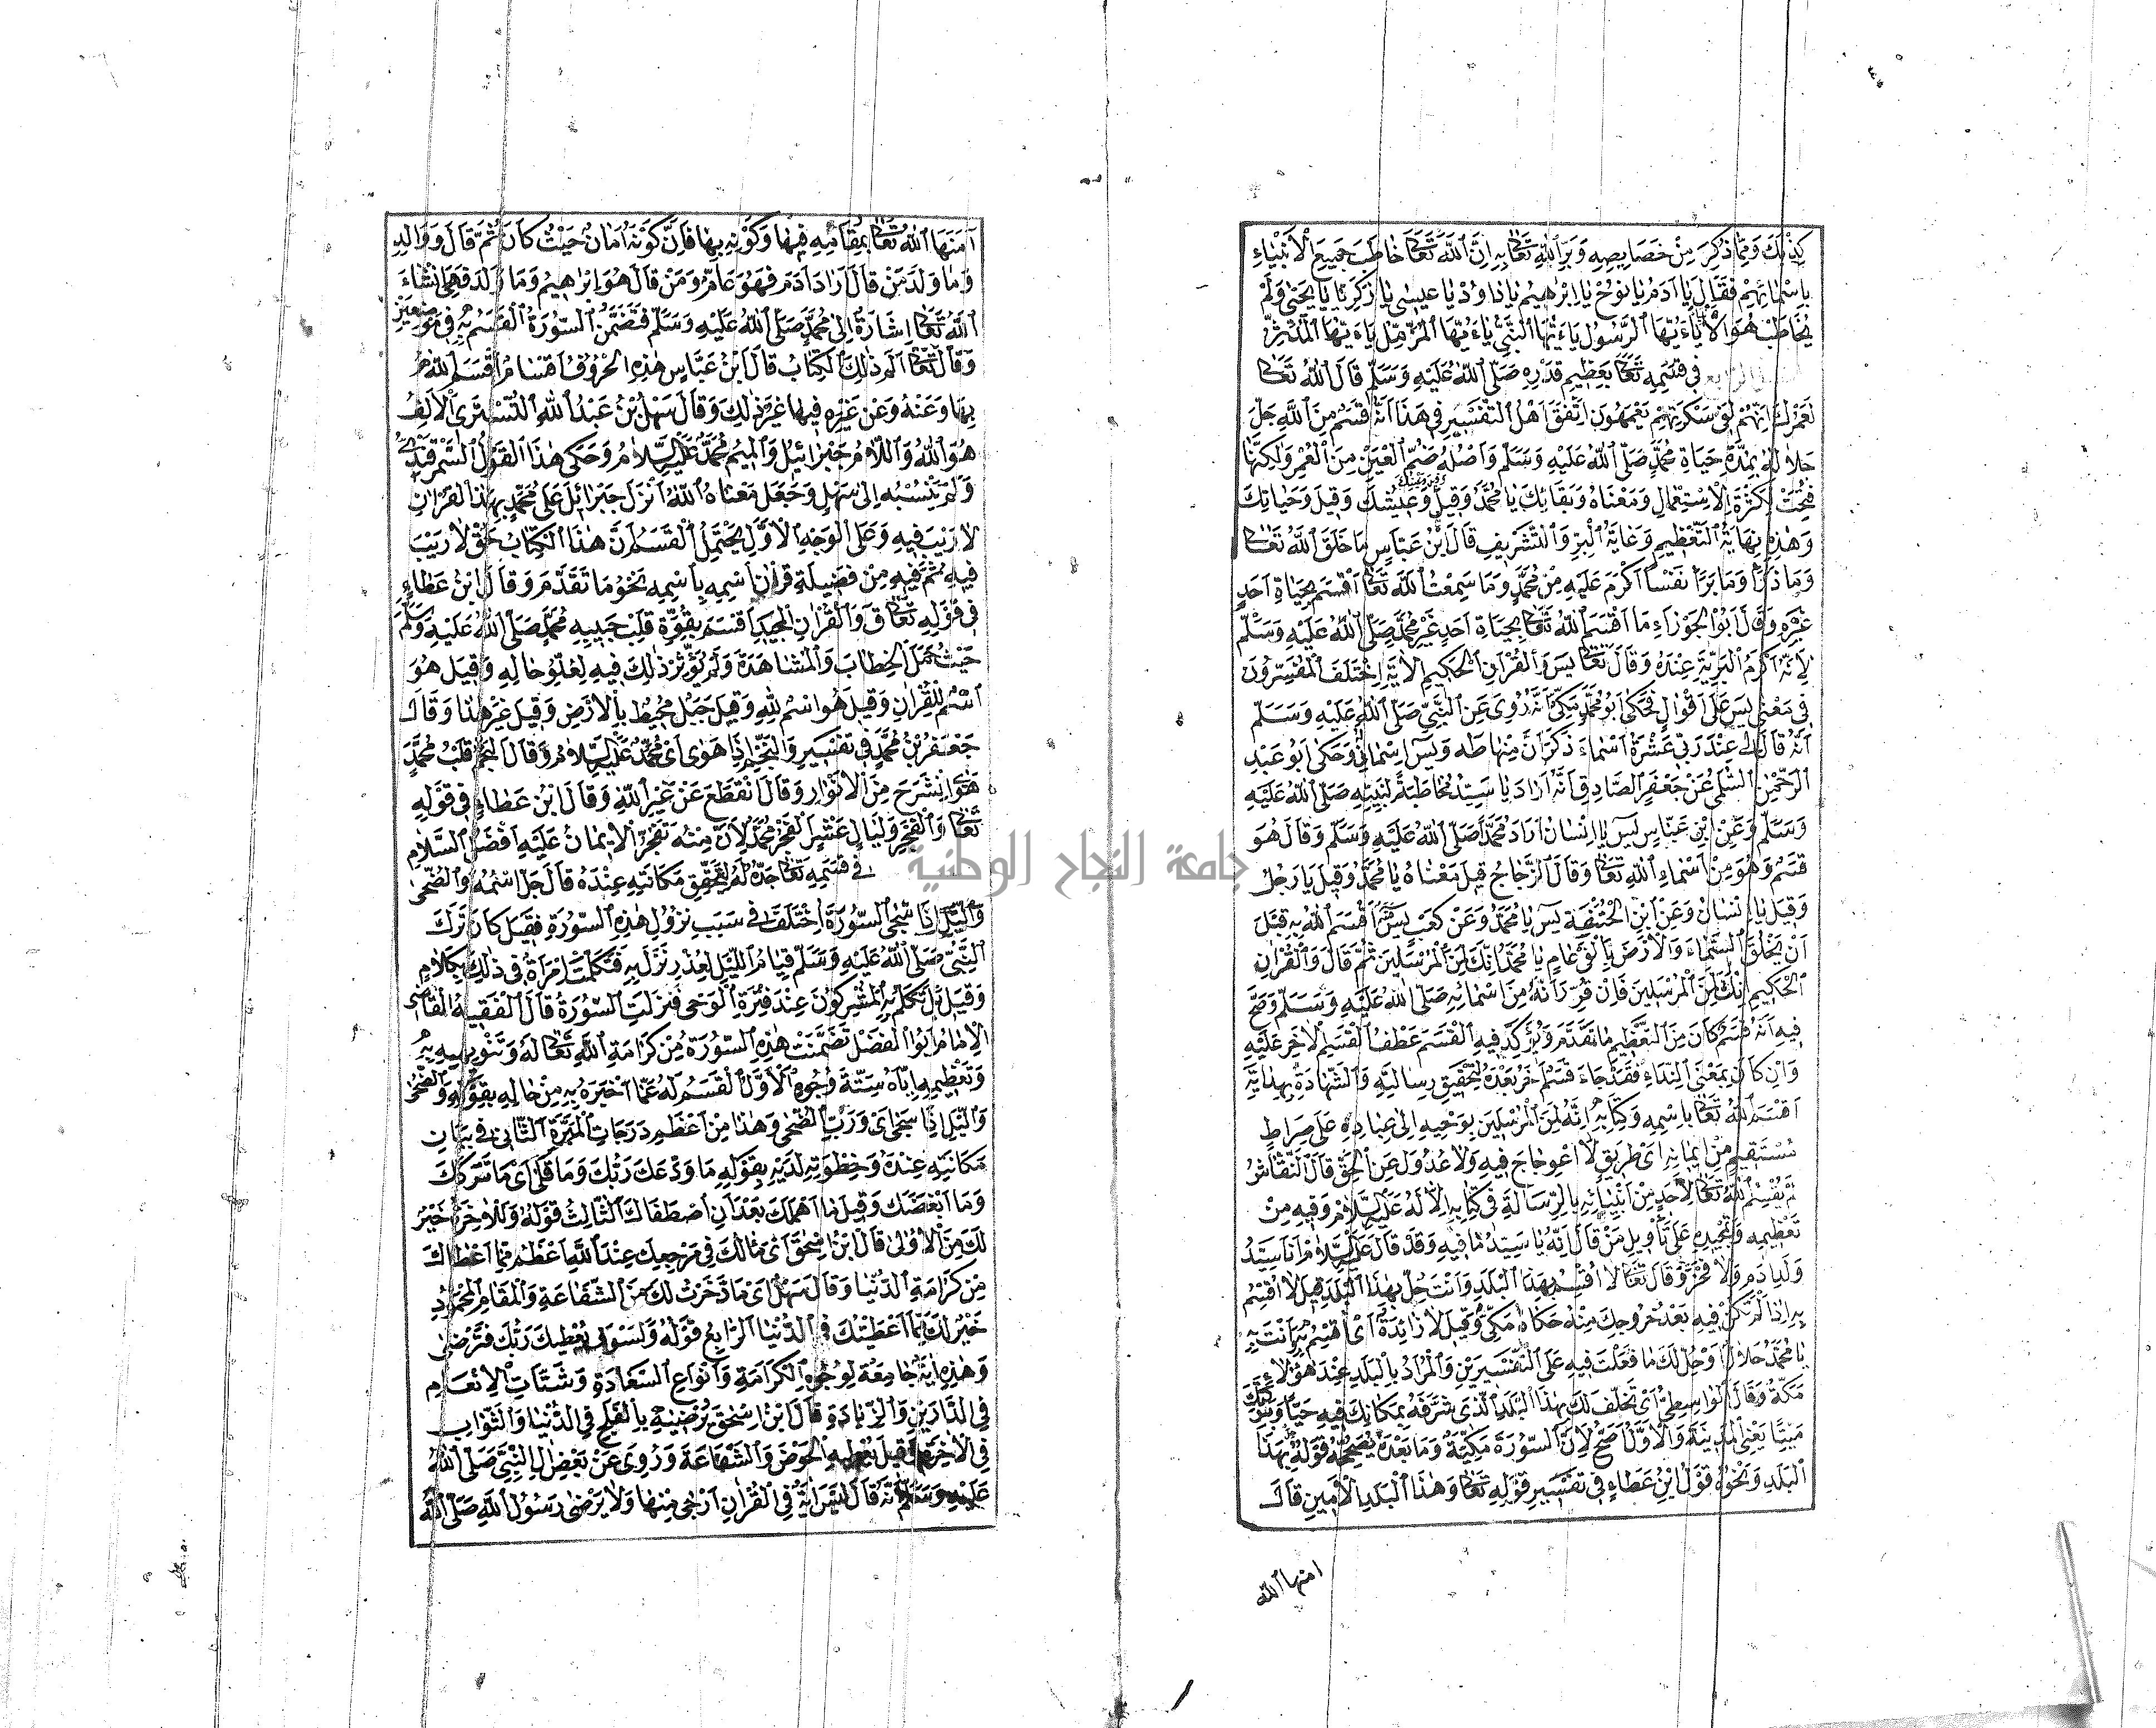 كذلك ومما ذكر من خصايصه وبر الله تعالى به ان الله تعالى خاطب جميع الانبياء
باسمائهم فقال يا ادم يا نوح يا ابرهيم يا داود يا عيسى يا زكريا يا يحيى ولم
يخاطب هو الا ياءيها الرسول ياءيها النبي ياءيها المزمل ياءيها المدثر
في قسمه تعالى بعظيم قدره صلى الله عليه وسلم قال الله تعالى
لعمرك انهم لفي سكرتهم يعمهون اتفق اهل التفسير في هذا انه قسم من الله جل
جلاله بمدة حياة محمد صلى الله عليه وسلم واصله ضم العين من العمر ولكنها
فتحت لكثرة الاستعمال ومعناه وبقائك يا محمد وقيل وعيشك وقيل وحياتك
وهذه نهاية التعظيم وغاية البر والتشريف قال ابن عباس ما خلق الله تعالى
وما ذرا وما برا نفسا اكرم عليه من محمد وما سمعت الله تعالى اقسم بحياة احد
غيره وقال ابو الجوزاء ما اقسم الله تعالى بحياة احد غير محمد صلى الله عليه وسلم
لانه اكرم البرية عنده وقال تعالى يس والقران الحكيم الاية اختلف المفسرون
في معنى يس على اقوال فحكى ابو محمد مكي انه روى عن النبي صلى الله عليه وسلم
انه قال لي عند ربي عشرة اسماء ذكر ان منها طه ويس اسمان وحكى ابو عبد
الرحمن السلمى عن جعفر الصادق انه اراد يا سيد مخاطبة لنبيه صلى الله عليه
وسلم وعن ابن عباس يس يا انسان اراد محمدا صلى الله عليه وسلم وقال هو
قسم وهو من اسماء الله تعالى وقال الزجاج قيل معناه يا محمد وقيل يا رجل
وقيل يا انسان وعن ابن الحنفية يس يا محمد وعن كعب يس قسم اقسم الله به قبل
ان يخلق السماء والارض بالفي عام يا محمد انك لمن المرسلين ثم قال والقران
الحكيم انك لمن المرسلين فان قرر انه من اسمائه صلى الله عليه وسلم وصح
فيه انه قسم كان من التعظيم ما تقدم ويؤكد فيه القسم عطف القسم الاخر عليه
وان كان بمعنى النداء فقد جاء قسم اخر بعده لتحقيق رسالته والشهادة بهدايته
اقسم الله تعالى باسمه وكتابه انه لمن المرسلين بوحيه الى عباده على صراط
مستقيم من ايمانه اي طريق لا اعوجاج فيه ولا عدول عن الحق قال النقاش
لم يقسم الله تعالى لاحد من انبيائه بالرسالة في كتابه الا له عليه السلام وفيه من
تعظيمه وتمجيده على تأويل من قال انه يا سيد ما فيه وقد قال عليه السلام انا سيد
ولد ادم ولا فخر وقال تعالى لا اقسم بهذا البلد وانت حل بهذا البلد قيل لا اقسم
به اذا لم تكن فيه بعد خروجك منه حكاه مكي وقيل لا زائدة اي اقسم به وانت به
يا محمد حلال او حل لك ما فعلت فيه على التفسيرين والمراد بالبلد عند هؤلاء
مكة وقال الواسطي اي نحلف لك بهذا البلد الذي شرفته بمكانك فيه حيا وببركتك
ميتا يعني المدينة والاول اصح لان السورة مكية وما بعده يصححه قوله بهذا
البلد ونحوه قول ابن عطاء في تفسير قوله تعالى وهذا البلد الامين قال
امنها الله
امنها الله تعالى بمقامه فيها وكونه بها فان كونه امان حيث كان ثم قال ووالد
وما ولد من قال اراد ادم فهو عام ومن قال هو ابرهيم وما ولد فهي ان شاء
الله تعالى اشارة الى محمد صلى الله عليه وسلم فتضمن السورة القسم به في موضعين
وقال تعالى الم ذلك الكتاب قال ابن عباس هذه الحروف اقسام اقسم الله
بها وعنه وعن غيره فيها غير ذلك وقال سهل بن عبد الله التستري الالف
هو الله واللام جبرائيل والميم محمد عليه السلام وحكى هذا القول السمرقندي
ولم ينسبه الى سهل وجعل معناه الله انزل جبرائل على محمد بهذا القران
لا ريب فيه وعلى الوجه الاول يحتمل القسم ان هذا الكتاب حق لا ريب
فيه ثم فيه من فضيلة قران اسمه باسمه نحو ما تقدم وقال ابن عطاء
في قوله تعالى ق والقران المجيد اقسم بقوة قلب حبيبه محمد صلى الله عليه وسلم
حيث حمل الخطاب والمشاهدة ولم يؤثر ذلك فيه لعلو حاله وقيل هو
اسم للقران وقيل هو اسم لله وقيل جبل محيط بالارض وقيل غير هذا وقال
جعفر بن محمد في تفسير والنجم اذا هوى اي محمد عليه السلام وقال النجم قلب محمد
هوى انشرح من الانوار وقال انقطع عن غير الله وقال ابن عطاء في قوله
تعالى والفجر وليال عشر الفجر محمد لان منه تفجر الايمان عليه افضل السلام
في قسمه تعالى جده له لتحقق مكانته عنده قال جل اسمه والضحى
والليل اذا سجى السورة اختلف في سبب نزول هذه السورة فقيل كان ترك
النبي صلى الله عليه وسلم قيام الليل لعذر نزل به فتكلمت امراة في ذلك بكلام
وقيل بل تكلم به المشركون عند فترة الوحي فنزلت السورة قال الفقيه القاضى
الامام ابو الفضل تضمنت هذه السورة من كرامة الله تعالى له وتنويهه به
وتعظيمه اياه ستة وجوه الاول القسم له عما اخبره به من حاله بقوله والضحى
والليل اذا سجى اي ورب الضحى وهذا من اعظم درجات المبرة الثاني في بيان
مكانته عنده وحظوته لديه بقوله ما ودعك ربك وما قلى اي ما تركك
وما ابغضك وقيل ما اهملك بعد ان اصطفاك الثالث قوله وللاخرة خير
لك من الاولى قال ابن اسحق اي مالك في مرجعك عند الله اعظم مما اعطاك
من كرامة الدنيا وقال سهل اي ما ذخرت لك من الشفاعة والمقام المحمود
خير لك مما اعطيتك في الدنيا الرابع قوله ولسوف يعطيك ربك فترضى
وهذه اية جامعة لوجوه الكرامة وانواع السعادة وشتات الانعام
في الدارين والزيادة قال ابن اسحق يرضيه بالفلج في الدنيا والثواب
في الاخرة وقيل يعطيه الحوض والشفاعة وروى عن بعض ال النبي صلى الله
عليه وسلم انه قال ليس اية في القران ارجى منها ولا يرضى رسول الله صلى الله
جامعة النجاح الوطنية